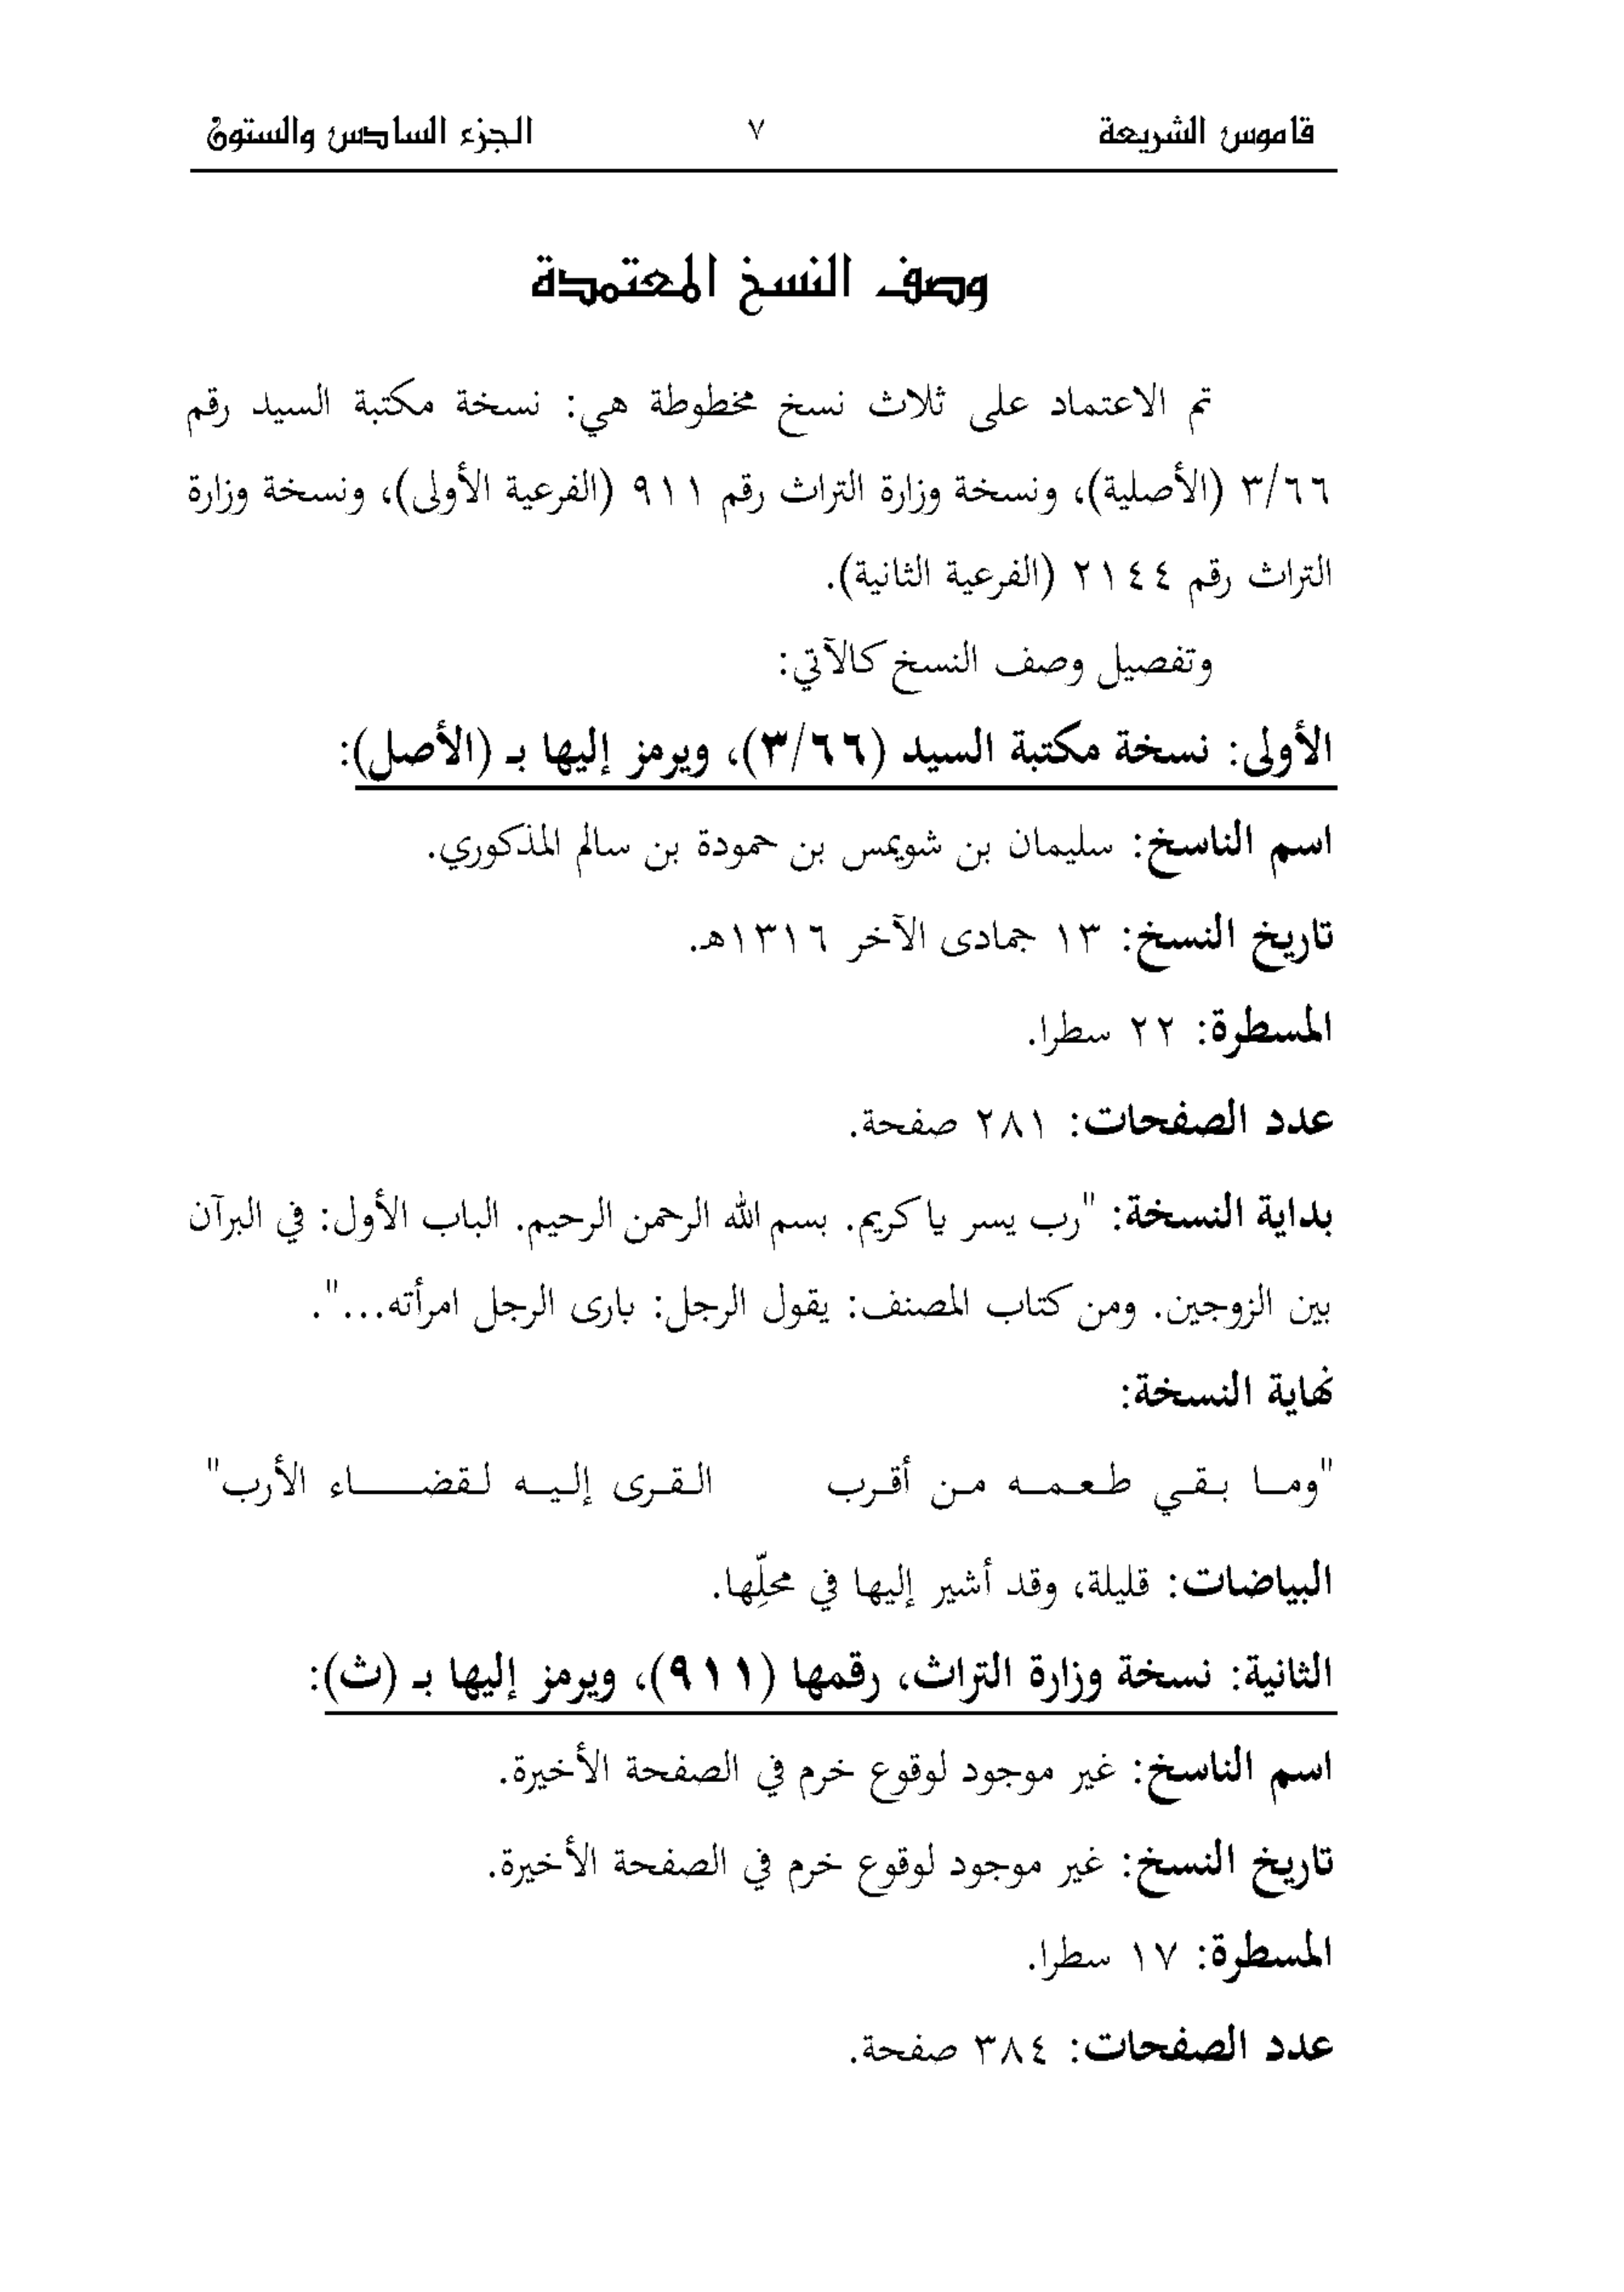 قاموس الشريعة ٧ الجزء السادس والستون
وصف النسخ المعتمدة
تم الاعتماد على ثلاث نسخ مخطوطة هي: نسخة مكتبة السيد رقم
٣/٦٦ (الأصلية)، ونسخة وزارة التراث رقم ٩١١ (الفرعية الأولى)، ونسخة وزارة
التراث رقم ٢١٤٤ (الفرعية الثانية).
وتفصيل وصف النسخ كالآتي:
الأولى: نسخة مكتبة السيد (٣/٦٦)، ويرمز إليها بـ (الأصل):
اسم الناسخ: سليمان بن شويمس بن حمودة بن سالم المذكوري.
تاريخ النسخ: ١٣ جمادى الآخر ١٣١٦هـ.
المسطرة: ٢٢ سطرا.
عدد الصفحات: ٢٨١ صفحة.
بداية النسخة: "رب يسر يا كريم. بسم الله الرحمن الرحيم. الباب الأول: في البرآن
بين الزوجين. ومن كتاب المصنف: يقول الرجل: بارى الرجل امرأته...".
نهاية النسخة:
"وما بقي طعمه من أقرب القرى إليه لقضاء الأرب"
البياضات: قليلة، وقد أشير إليها في محلِّها.
الثانية: نسخة وزارة التراث، رقمها (٩١١)، ويرمز إليها بـ (ث):
اسم الناسخ: غير موجود لوقوع خرم في الصفحة الأخيرة.
تاريخ النسخ: غير موجود لوقوع خرم في الصفحة الأخيرة.
المسطرة: ١٧ سطرا.
عدد الصفحات: ٣٨٤ صفحة.